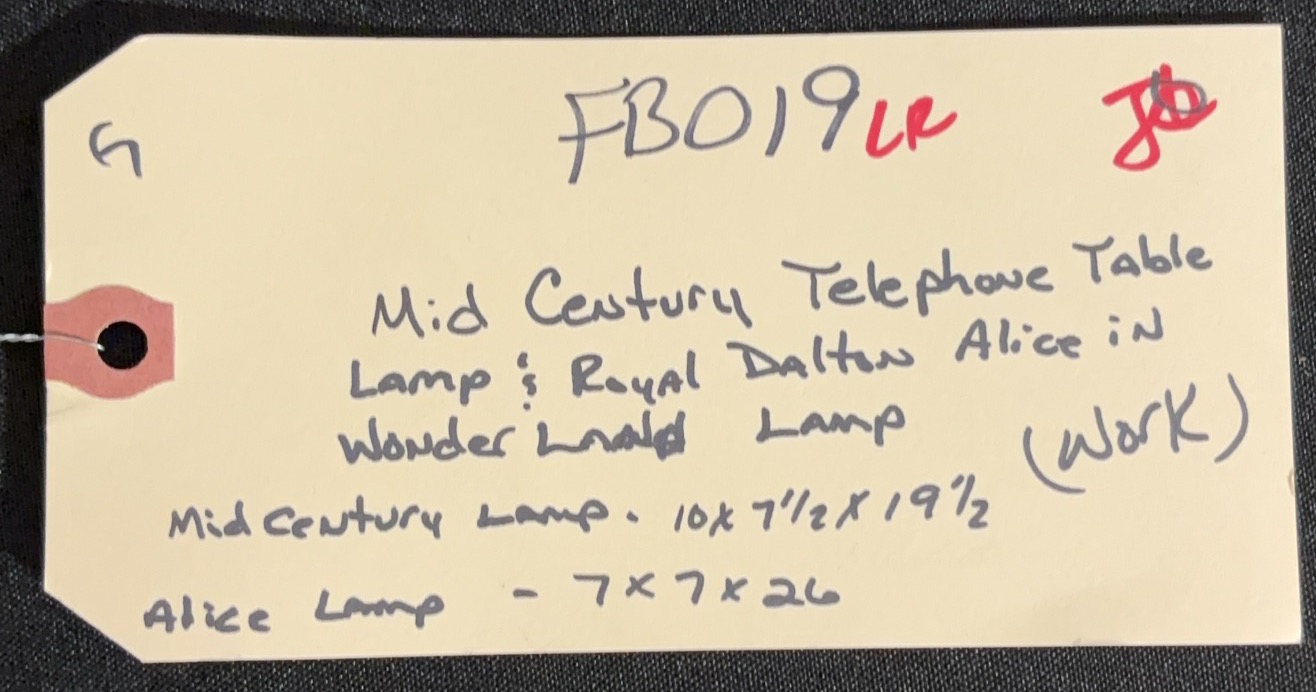 G
FB019 LR
Mid Century Telephone Table
Lamp & Royal Dalton Alice in
Wonder Land Lamp (Work)
Mid Century Lamp - 10 x 7 1/2 x 19 1/2
Alice Lamp - 7 x 7 x 26